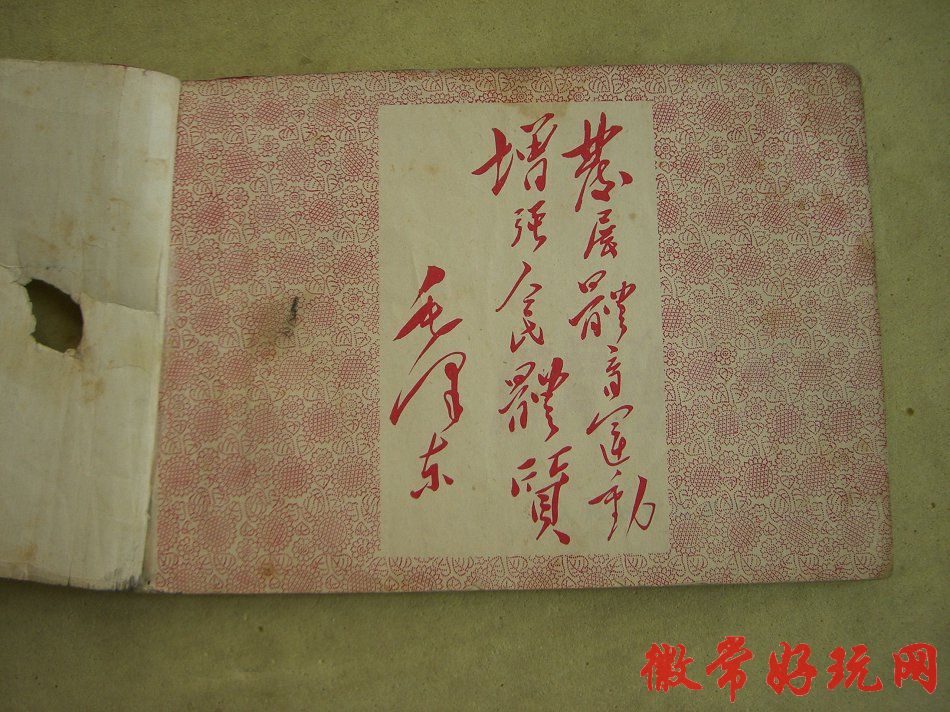 發展體育運動
增强人民體質
毛泽东
徽常好玩网